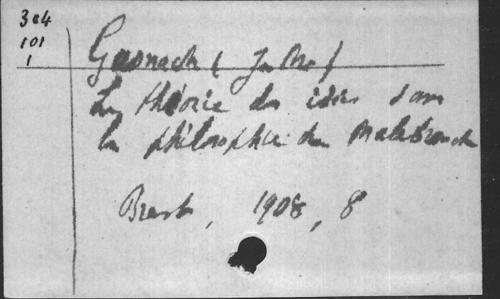 304
101
1
Gasnach (Jules)
La théorie des idées dans
la philosophie de Malebranche
Brest, 1908, 8°